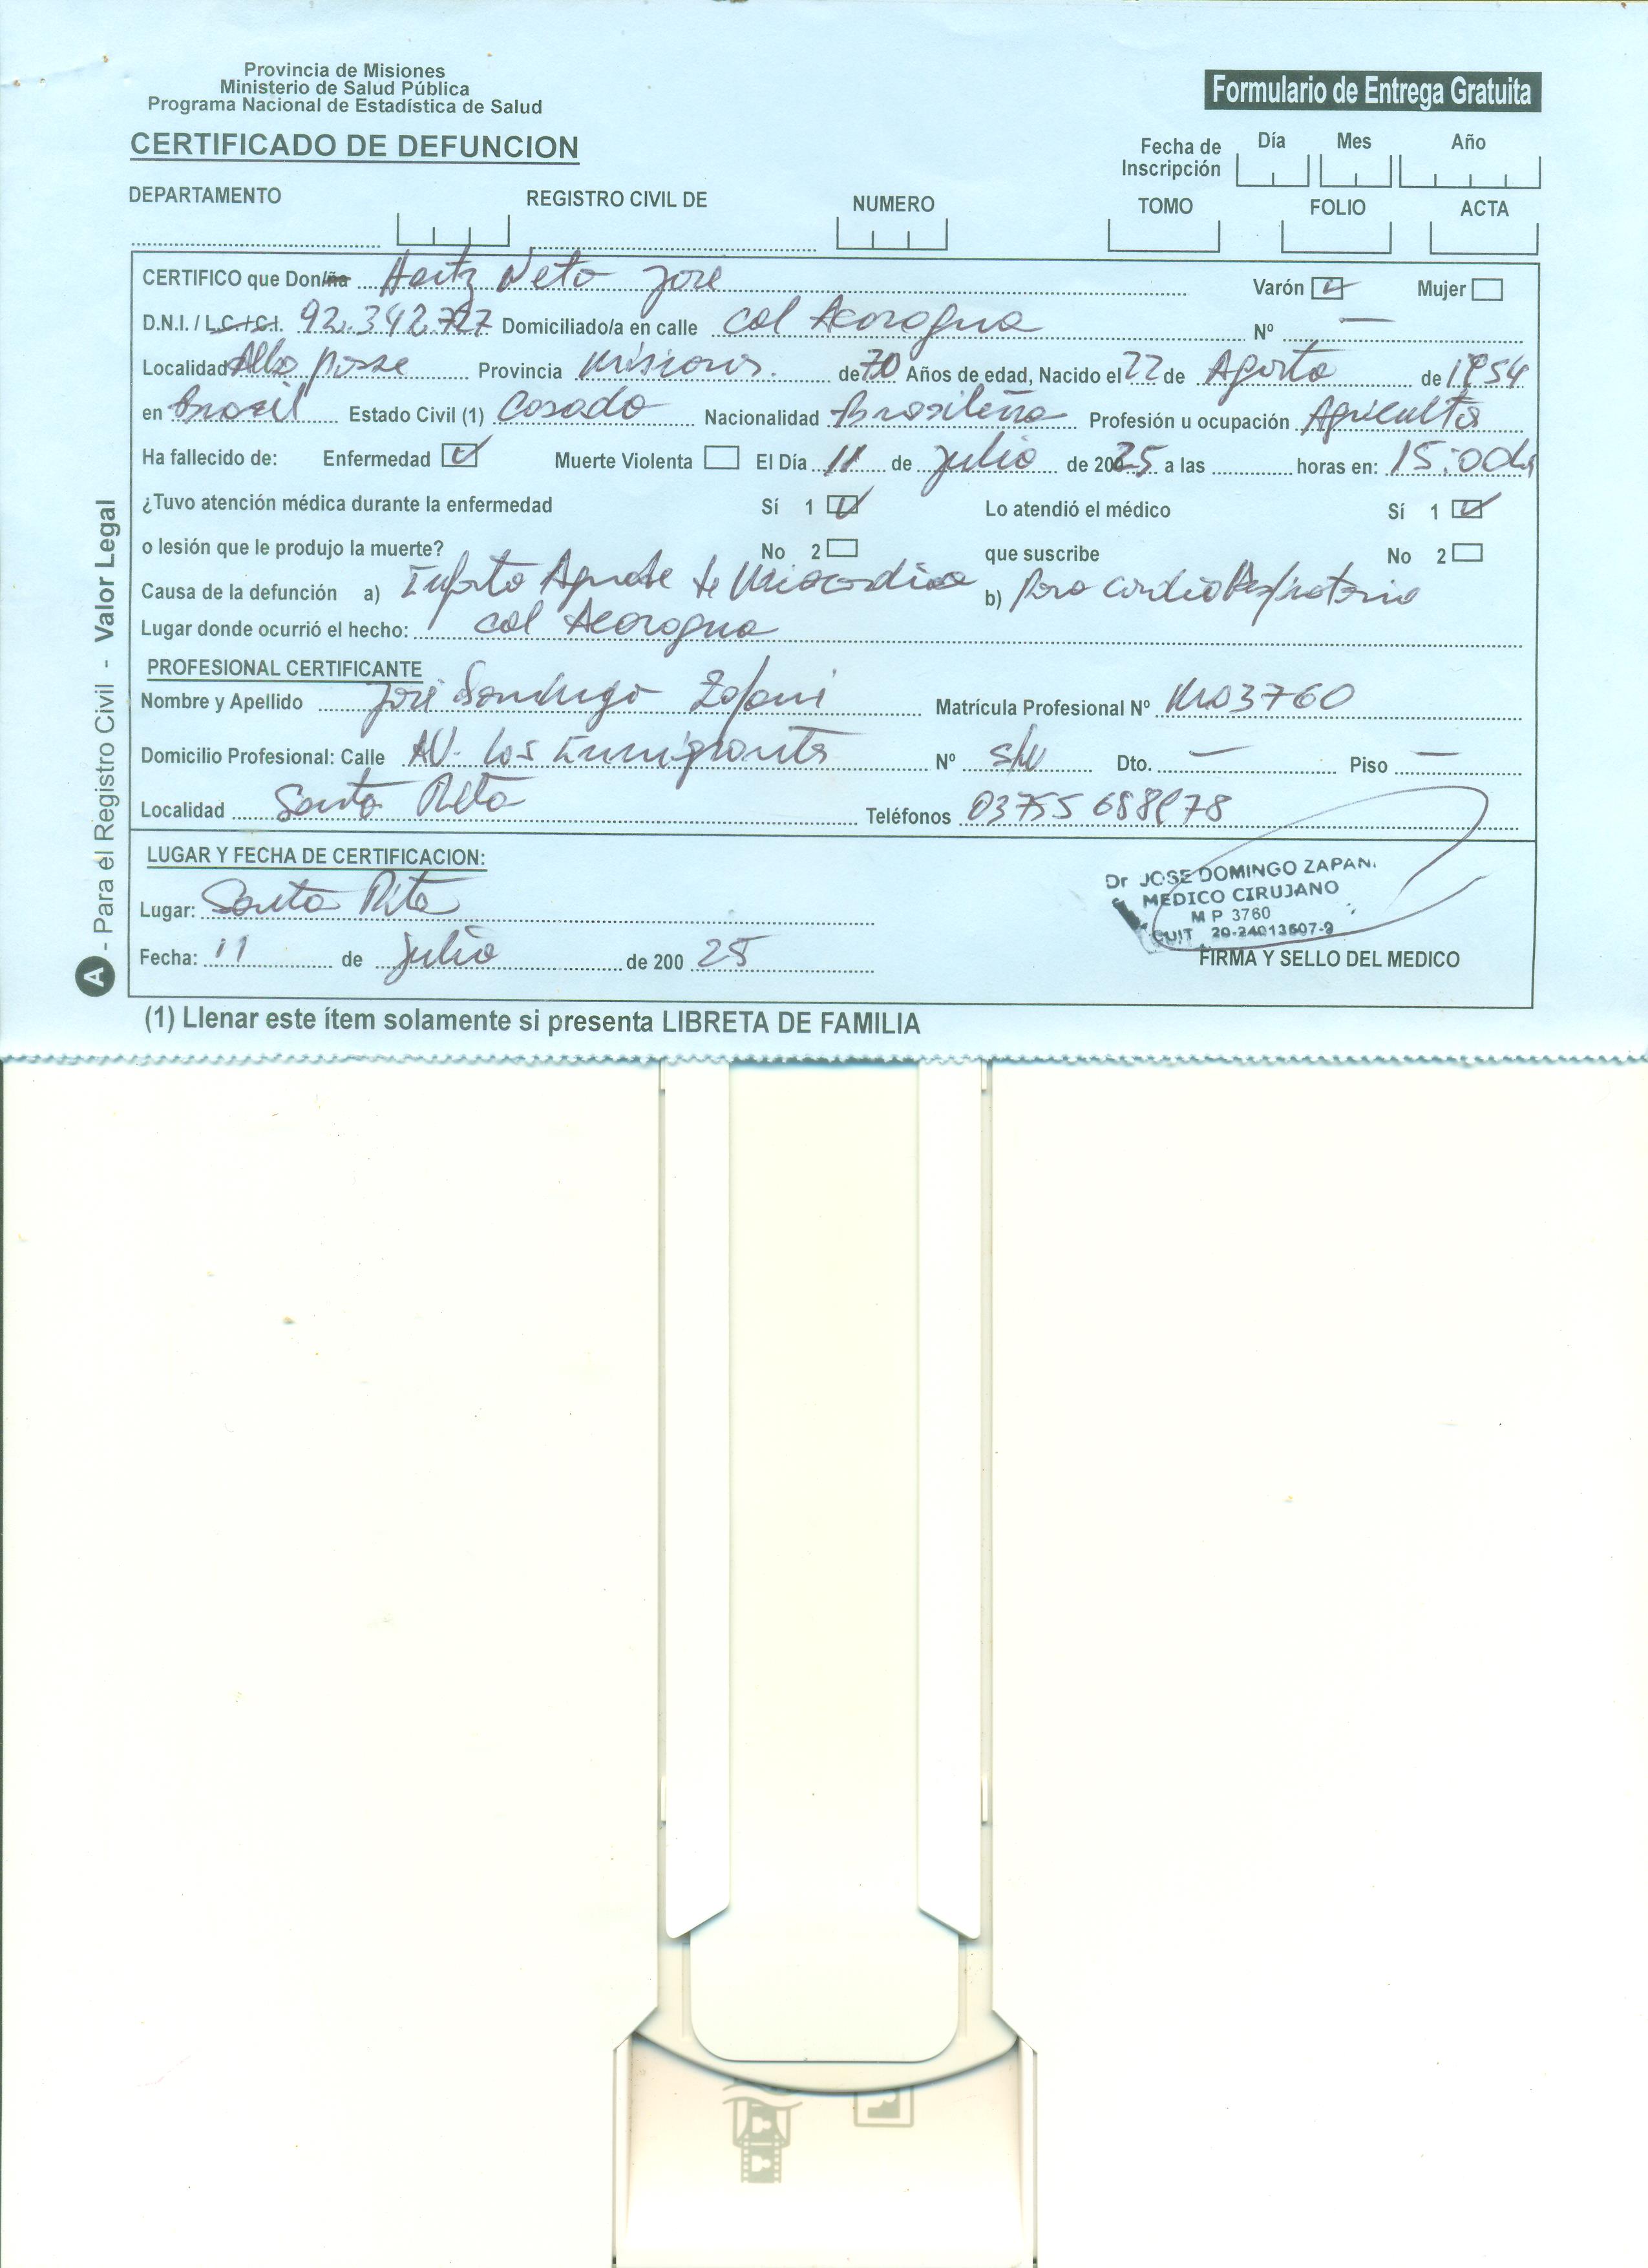 Provincia de Misiones
Ministerio de Salud Pública
Programa Nacional de Estadística de Salud
Formulario de Entrega Gratuita
CERTIFICADO DE DEFUNCION
Fecha de Inscripción Día Mes Año
DEPARTAMENTO REGISTRO CIVIL DE NUMERO TOMO FOLIO ACTA
CERTIFICO que Don/ña Neto Jose Varón Mujer
D.N.I. / L.C. / C.I. 92.342.727 Domiciliado/a en calle col Acaragua Nº —
Localidad Alba posse Provincia Misiones. de 70 Años de edad, Nacido el 22 de Agosto de 1954
en Brasil Estado Civil (1) Casado Nacionalidad Brasileña Profesión u ocupación Agricultor
Ha fallecido de: Enfermedad Muerte Violenta El Día 11 de Julio de 20025 a las horas en: 15:00
¿Tuvo atención médica durante la enfermedad Sí 1 Lo atendió el médico Sí 1
o lesión que le produjo la muerte? No 2 que suscribe No 2
Causa de la defunción a) Infarto Agudo de Miocardio b) Paro cardio Respiratorio
Lugar donde ocurrió el hecho: col Acaragua
PROFESIONAL CERTIFICANTE
Nombre y Apellido José Domingo Zapani Matrícula Profesional Nº 3760
Domicilio Profesional: Calle AV. Los Inmigrantes Nº S/N Dto. — Piso —
Localidad Santa Rita Teléfonos 03755
LUGAR Y FECHA DE CERTIFICACION:
Lugar: Santa Rita
Fecha: 11 de Julio de 200 25
Dr JOSE DOMINGO ZAPANI
MEDICO CIRUJANO
M P 3760
CUIT 20-24013607-9
FIRMA Y SELLO DEL MEDICO
(1) Llenar este ítem solamente si presenta LIBRETA DE FAMILIA
A - Para el Registro Civil - Valor Legal